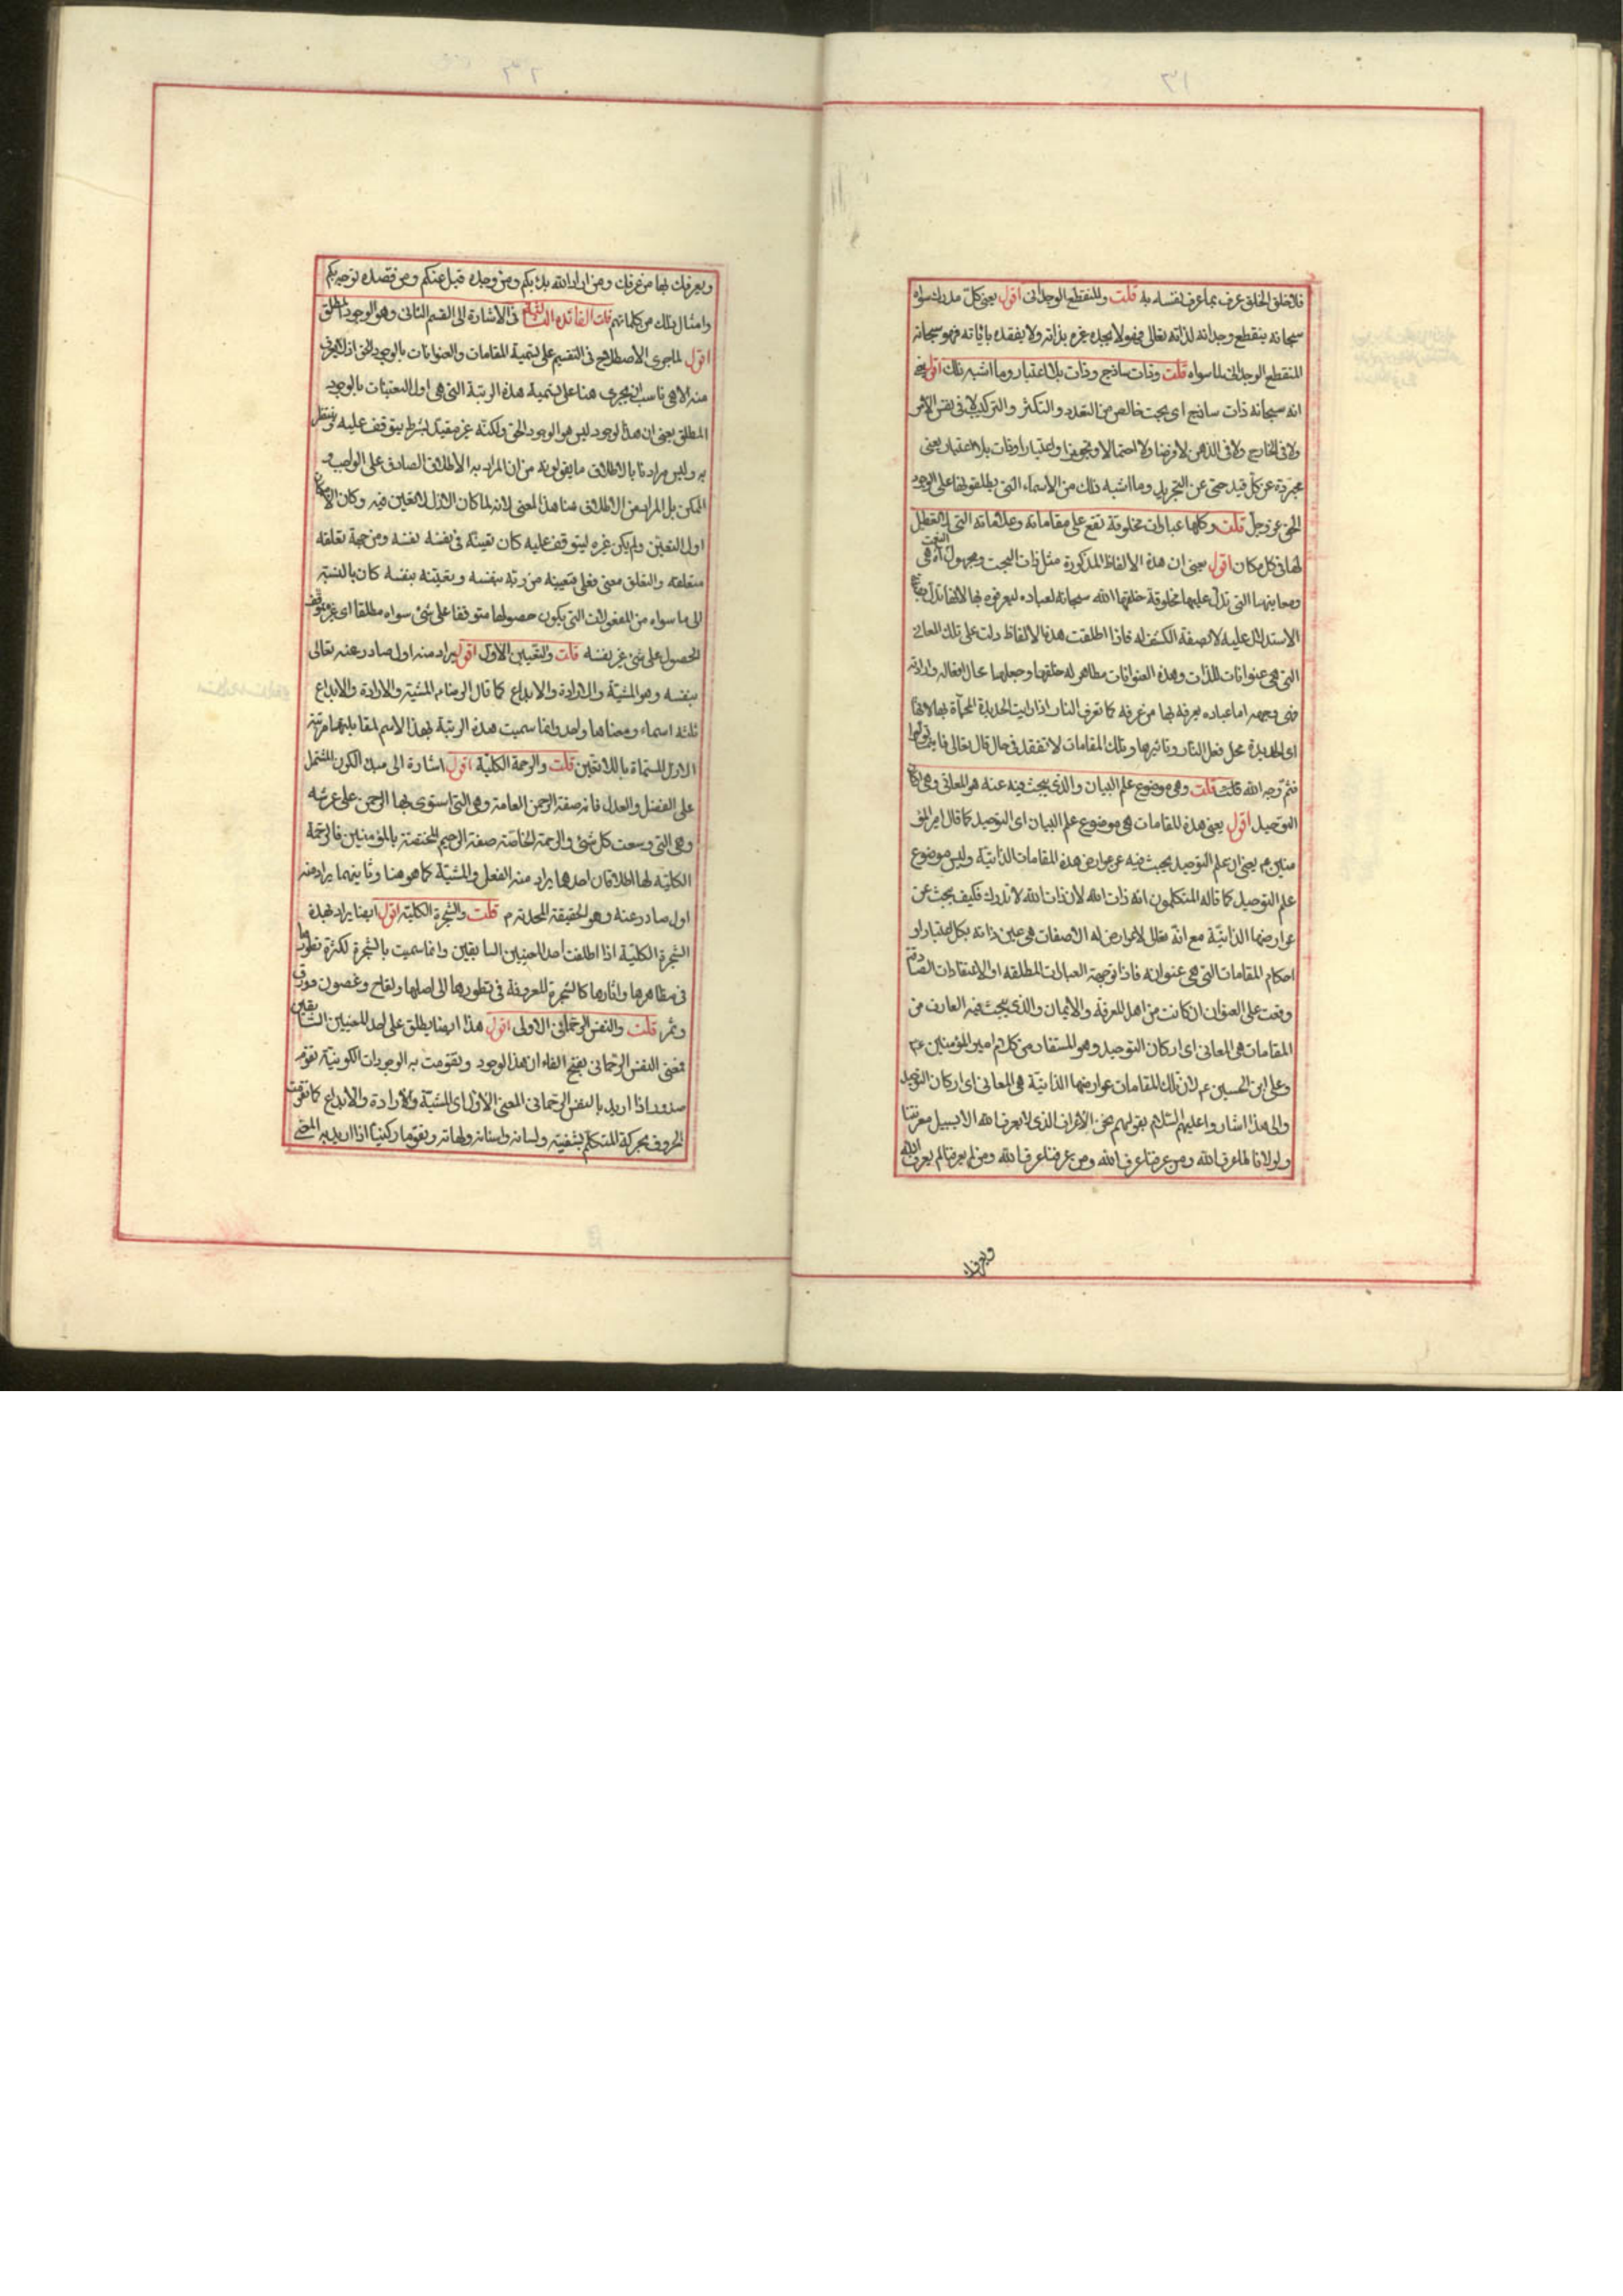 فلا خلق الخلق عرف بما عرف نفسه به قلت والمنقطع الوجدانى اقول يعنى كل مدرك سواه
سبحانه ينقطع وجدانه لذاته تعالى فهو لا يجده غيره بذاته ولا يفقده باياته فهو سبحانه
المنقطع الوجدانى لما سواه قلت وذات ساذج وذات بلا اعتبار وما اشبه ذلك اقول يعنى
انه سبحانه ذات ساذج اى بحت خالص من التعدد والتكثر والتركيب لا فى نفس الامر
ولا فى الخارج ولا فى الذهن لا فرضا ولا احتمالا ولا تجويزا ولا اعتبارا وذات بلا اعتبار يعنى
مجردة عن كل قيد حتى عن التجريد وما اشبه ذلك من الاسماء التى يطلقونها على الوجود
الحق عز وجل قلت وكلها عبارات مخلوقة تقع على مقاماته وعلاماته التى لا تعطيل
لها فى كل مكان اقول يعنى ان هذه الالفاظ المذكورة مثل ذات البحت ومجهول النعت
ومعاينها التى تدل عليها مخلوقة خلقها الله سبحانه لعباده ليعرفوه بها لانها تدل
الاستدلال عليه لا صفة الكشف له فاذا اطلقت هذه الالفاظ دلت على تلك المعانى
التى هى عنوانات للذات وهذه العنوانات مظاهر له خلقها وجعلها محال افعاله وارادته
فهى وجهه اما عباده يعرفه بها من عرفه كما تعرف النار اذا رايت الحديدة المحماة بها لانها
اى الحديدة محل فعل النار وتاثيرها وتلك المقامات لا تفقد فى حال قال تعالى فاينما تولوا
فثم وجه الله قلت وهى موضوع علم البيان والذى يبحث فيه عنه هو المعانى وهى اركان
التوحيد اقول يعنى هذه المقامات هى موضوع علم البيان اى التوحيد كما قال امير المؤ
منين ع يعنى ان علم التوحيد يبحث فيه عن عوارض هذه المقامات الذاتية وليس موضوع
علم التوحيد كما قاله المتكلمون انه ذات الله لان ذات الله لا تدرك فكيف يبحث عن
عوارضها الذاتية مع انه تعالى لا عوارض له الا صفات هى عين ذاته بكل اعتبار او
احكام المقامات التى هى عنوانه فاذا توجهت العبارات المطلقه او الاعتقادات الصادرة
وقعت على العنوان ان كانت من اهل المعرفة والايمان والذى يبحث فيه العارف من
المقامات هى المعانى اى اركان التوحيد وهو المستفاد من كلام امير المؤمنين ع
وعلى ابن الحسين ع لان تلك المقامات عوارضها الذاتية هى المعانى اى اركان التوحيد
والى هذا اشاروا عليهم السلام بقولهم نحن الاعراف الذى لا يعرف الله الا بسبيل معرفتنا
ولولانا لما عرف الله ومن عرفنا عرف الله ومن عرفنا عرف الله ومن لم يعرفنا لم يعرف الله
ويعرفك
ويعرفك بها من عرفك ومن اراد الله بدء بكم ومن وحده قبل عنكم ومن قصده توجه بكم
وامثال ذلك من كلماتهم قلت الفائده الثالثه فى الاشارة الى القسم الثانى وهو الوجود المطلق
اقول لما جرى الاصطلاح فى التقسيم على تسمية المقامات والعنوانات بالوجود الحق اذ لا يعرف
منه الا هى ناسب ان يجرى هنا على تسمية هذه الرتبة التى هى اول التعينات بالوجود
المطلق يعنى ان هذا لوجود ليس هو الوجود الحق ولكنه غير مقيد بشرط يتوقف عليه
به وليس مرادنا بالاطلاق ما يقولونه من ان المراد به الاطلاق الصادق على الواجب و
الممكن بل المراد من الاطلاق هنا هذا المعنى لانه لما كان الازل لا تعين فيه وكان الامكان
اول التعين ولم يكن غيره ليتوقف عليه كان تعينه فى نفسه نفسه ومن جهة تعلقه
متعلقه والتعلق معنى فعلى بتعيينه من ربه بنفسه وبتعينه بنفسه كان بالنسبة
الى ما سواه من المفعولات التى يكون حصولها متوقفا على شئ سواه مطلقا اى غير متوقف
الحصول على شئ غير نفسه قلت والتعيين الاول اقول يراد منه اول صادر عنه تعالى
بنفسه وهو المشية والارادة والابداع كما قال الرضا ع المشية والارادة والابداع
ثلثه اسماء ومعناها واحد وانما سميت هذه الرتبة بهذا الاسم لمقابلتها مرتبة
الازل المسماة باللاتعين قلت والرحمة الكلية اقول اشارة الى مبدء الكون المشتمل
على الفضل والعدل فانه صفة الرحمن العامة وهى التى استوى بها الرحمن على عرشه
وهى التى وسعت كل شئ والرحمة الخاصة صفة الرحيم المختصة بالمؤمنين فالرحمة
الكلية لها اطلاقان احدها يراد منه الفعل والمشية كما هو هنا وثانيهما يراد منه
اول صادر عنه وهو الحقيقة المحمدية م قلت والشجرة الكلية اقول ايضا يراد بهذه
الشجرة الكلية اذا اطلقت احد المعنيين السابقين وانما سميت بالشجرة لكثرة تطورها
فى مظاهرها واثارها كالشجرة المعروفة فى تطورها الى اصلها ولقاح وغصون وورق
وثمر قلت والنفس الرحمانى الاولى اقول هذا ايضا يطلق على احد المعنيين السابقين
فمعنى النفس الرحمانى بفتح الفاء ان هذا لوجود وتقومت به الوجودات الكونية تقوم
صدور اذا اريد بالنفس الرحمانى المعنى الاول اى المشية والارادة والابداع كما تقومت
الحروف بحركة المتكلم بشفتيه ولسانه واسنانه ولهاته وتقوما ركنيا اذا اريد به المعنى